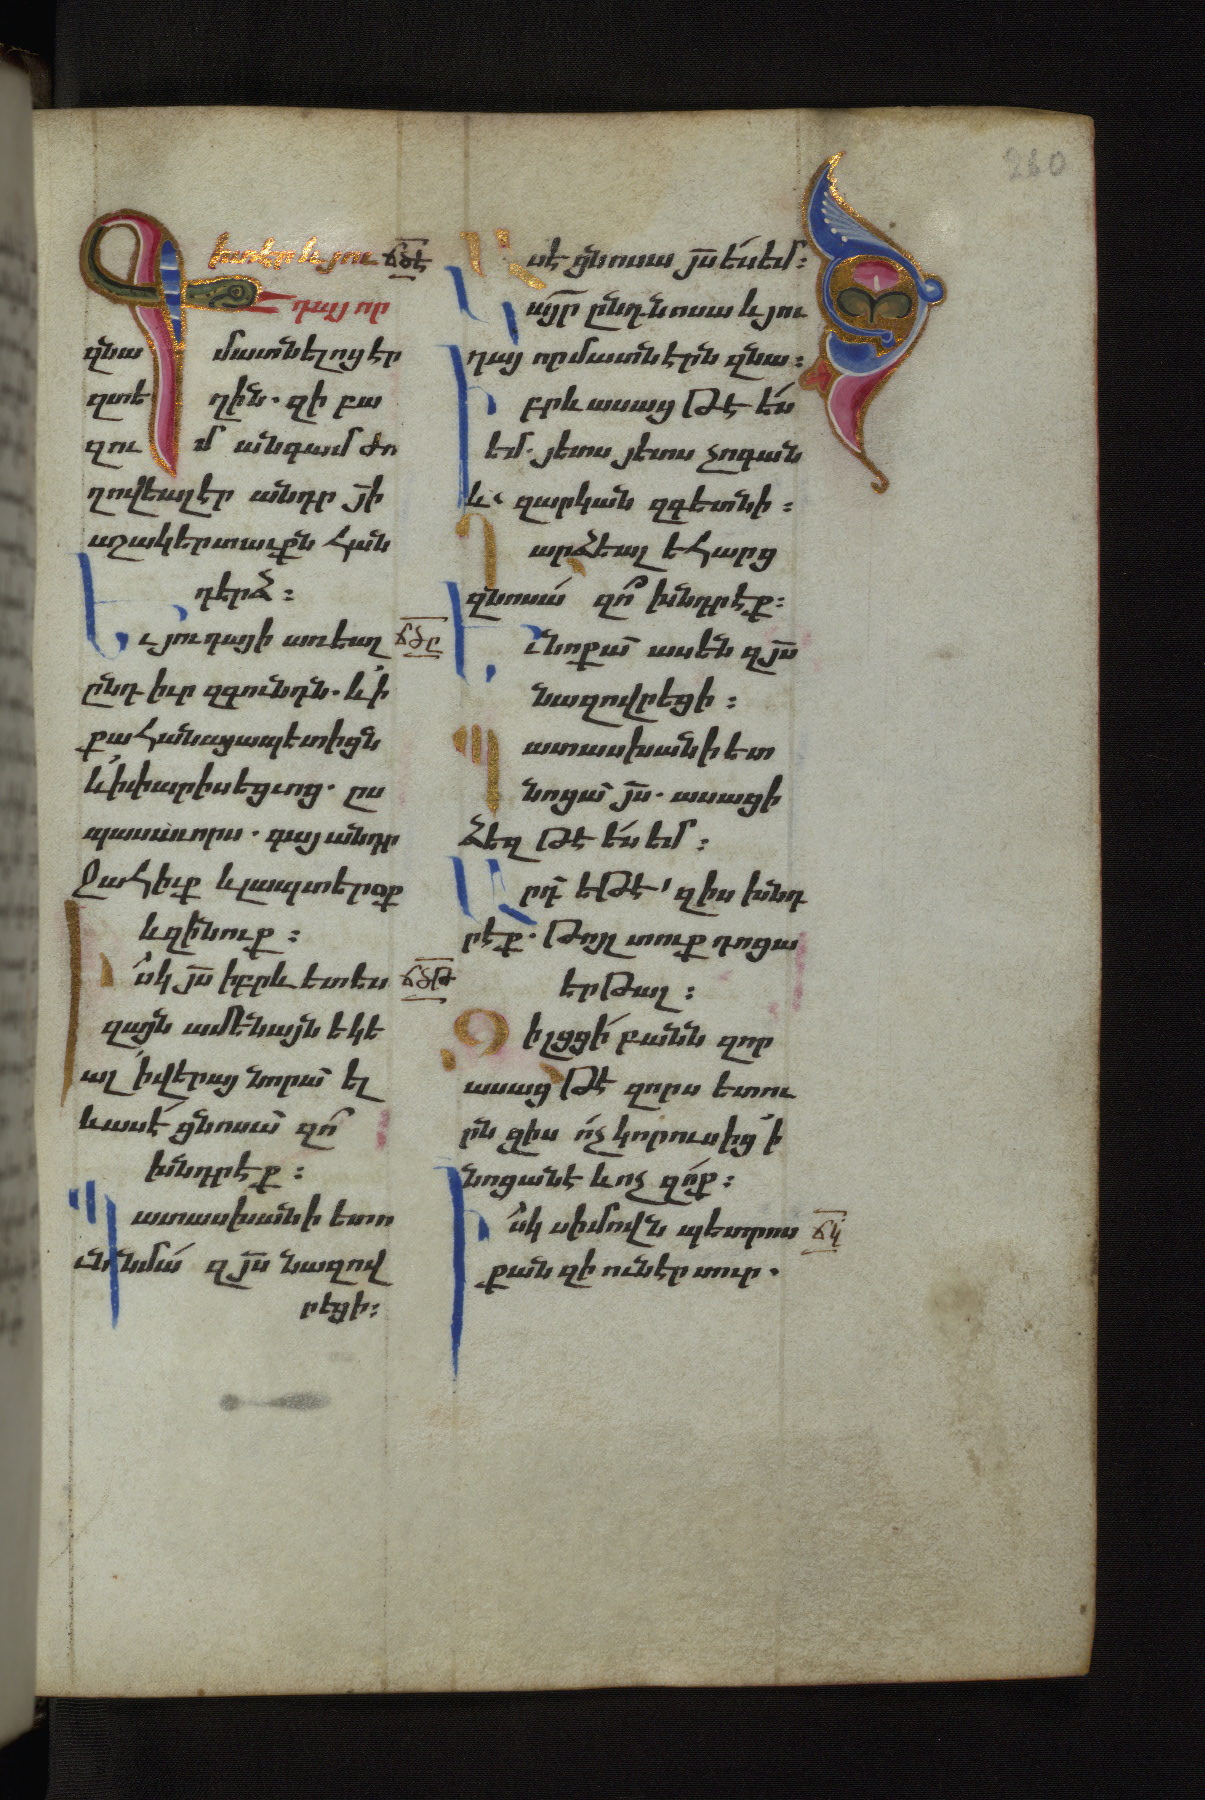 260
Գիտէր և յու ճծէ
դայ որ
զնա մատնելոց էր
զտե ղին. զի բա
զու մ անգամ ժո
ղովեալ էր անդր յի
աշակերտաւքն հան
դերձ։
Եւ յուդայի առեալ ճծը
ընդ իւր զգունդն. և ի
քահանայապետիցն
և ի փարիսեցւոց. ըս
պասաւորս. գայ անդր
ջահիւք և լապտերօք
և զինուք։
Իսկ յս իբրև ետես ճծթ
զայն ամենայն եկե
ալ ի վերայ նորա ել
և ասէ ցնոսա զո՞
խնդրէք։
Պատասխանի ետո
ւն նմա զյս նազով
րեցի։
Ասէ ցնոսա յս ես եմ։
Կայր ընդ նոսա և յու
դայ որ մատնէրն զնա։
Իբրև ասաց թէ ես
եմ. յետս յետս չոգան
և զարկան զգետնի։
Դարձեալ եհարց
զնոսա զո՞ խնդրէք։
Եւ նոքա ասեն զյս
նազովրեցի։
Պատասխանի ետ
նոցա յս. ասացի
ձեզ թէ ես եմ։
Արդ եթէ զիս խնդ
րէք. թոյլ տուք դոցա
երթալ։
Զի լցցի բանն զոր
ասաց թէ զորս ետու
րն ցիս ոչ կորուսից ի
նոցանէ և ոչ զոք։
Իսկ սիմովն պետրոս ճկ
քանզի ունէր սուր.